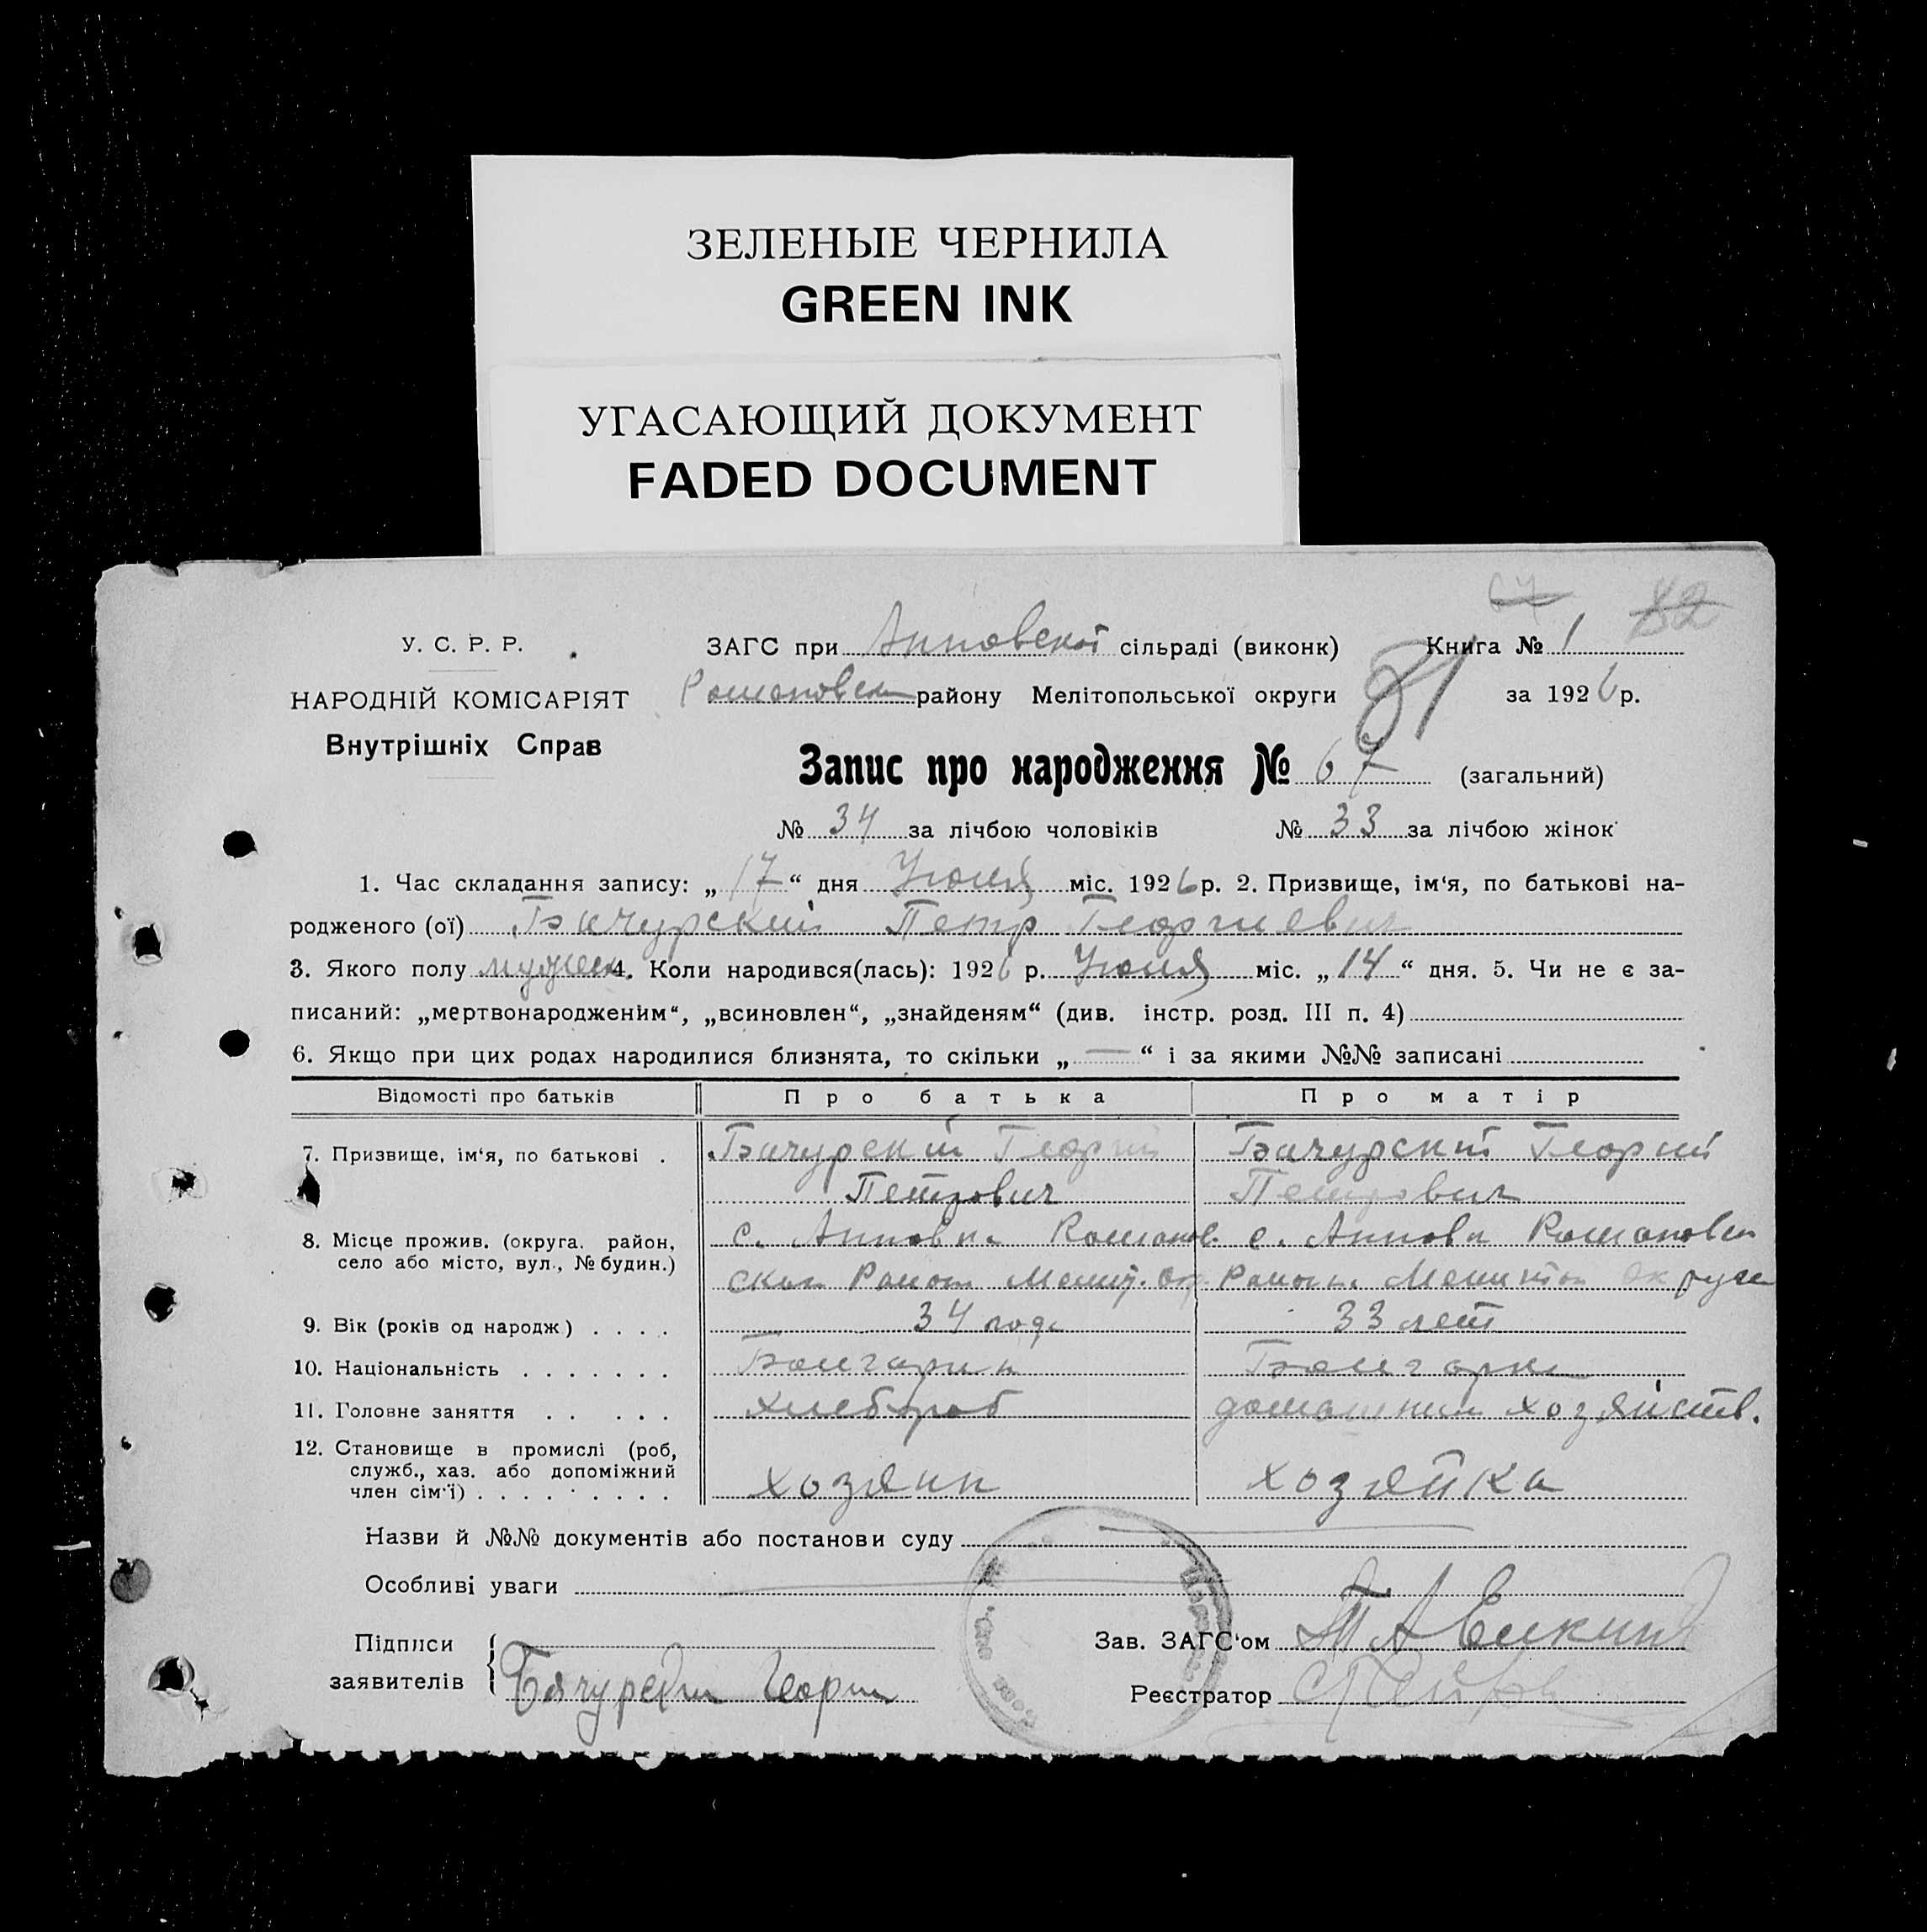 ЗЕЛЕНЫЕ ЧЕРНИЛА
GREEN INK
УГАСАЮЩИЙ ДОКУМЕНТ
FADED DOCUMENT
67 82
У. С. Р. Р.
НАРОДНІЙ КОМІСАРІЯТ
Внутрішніх Справ
ЗАГС при Анновской сільраді (виконк) Книга № 1
Романовск району Мелітопольської округи 81 за 1926 р.
Запис про народження № 67 (загальний)
№ 34 за лічбою чоловіків № 33 за лічбою жінок
1. Час складання запису: „17“ дня Июля міс. 1926 р. 2. Призвище, ім‘я, по батькові на-
родженого (ої) Бачурский Петр Георгиевич
3. Якого полу мужск 4. Коли народився(лась): 1926 р. Июля міс. „14“ дня. 5. Чи не є за-
писаний: „мертвонародженим“, „всиновлен“, „знайденям“ (див. інстр. розд. III п. 4)
6. Якщо при цих родах народилися близнята, то скільки „—“ і за якими №№ записані
Відомості про батьків Про батька Про матір
7. Призвище, ім‘я, по батькові . Бачурский Георгий Бачурский Георгий
Петрович Петрович
8. Місце прожив. (округа, район, с. Анновка Романов с.Ановк Романовск
село або місто, вул., № будин.) Скаг Район Мелит. Окр. Района Мелитоп Округи
9. Вік (років од народж) . . . . 34 года 33 лет
10. Національність . . . . . . . Болгарин Болгарка
11. Головне заняття . . . . . Хлебороб домашния хозяйств.
12. Становище в промислі (роб,
служб., хаз. або допоміжний
член сім‘ї) . . . . . . . . . хозяин хозяйка
Назви й №№ документів або постанови суду
Особливі уваги
Підписи
заявителів Бачурский Георги
Зав. ЗАГС‘ом
Реєстратор